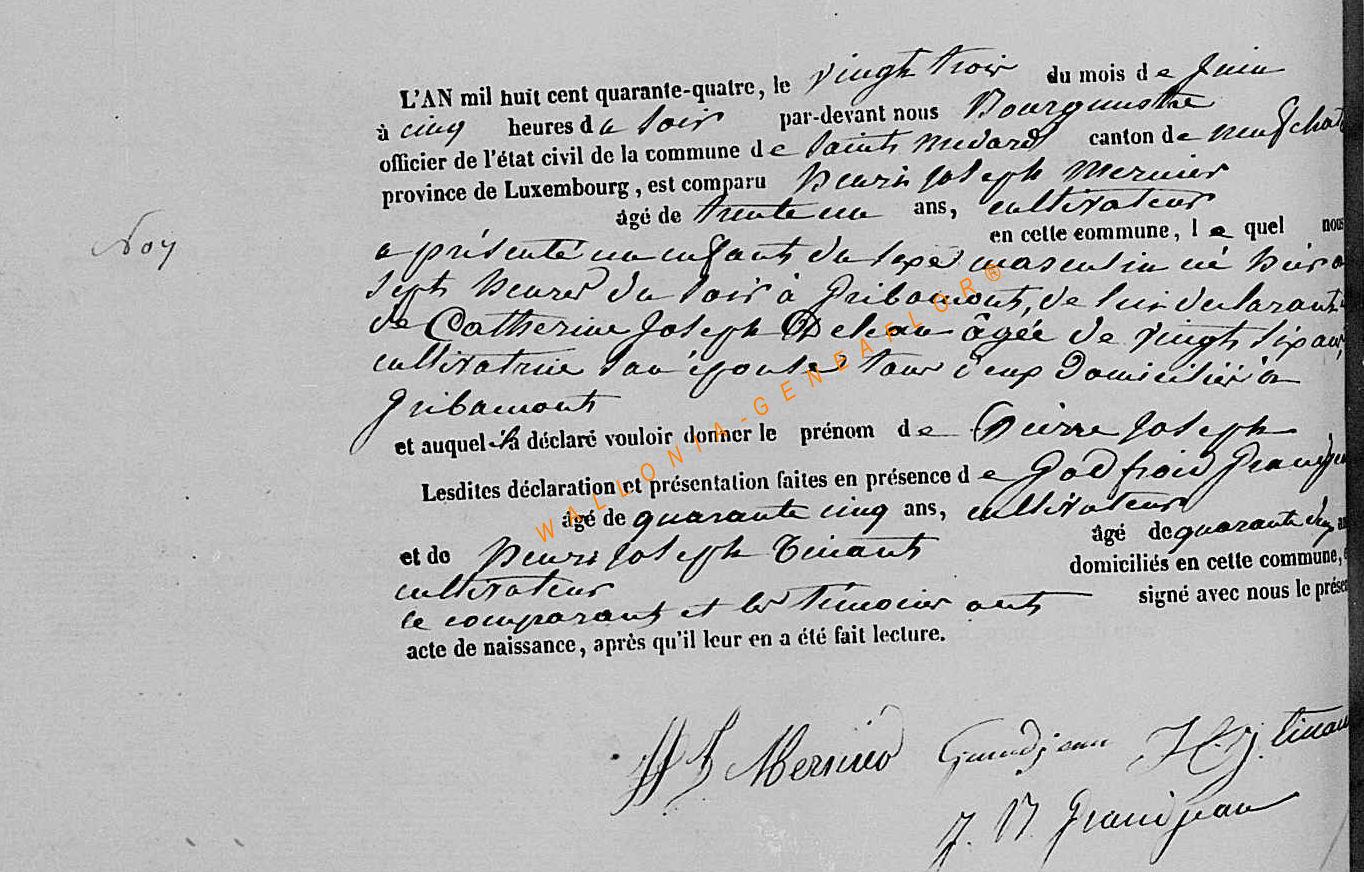 L'AN mil huit cent quarante-quatre, le vingt trois du mois de juin
à cinq heures du soir par-devant nous Bourgmestre
officier de l'état civil de la commune de Saint Medard canton de neufchat
province de Luxembourg, est comparu henri joseph Mernier
âgé de trente un ans, cultivateur
en cette commune, lequel nous
No 4
a présenté un enfant du sexe masculin né hier a
sept heures du soir à gribomont, de lui declarant
de Catherine joseph âgée de vingt six ans
cultivatrice son épouse tous deux domiciliés a
gribomont
et auquel il a déclaré vouloir donner le prénom de Pierre joseph
Lesdites déclaration et présentation faites en présence de godfroid grandjean
âgé de quarante cinq ans, cultivateur
et de henri joseph Tinant âgé de quarante cinq
cultivateur domiciliés en cette commune,
le comparant et les témoins ont signé avec nous le prése
acte de naissance, après qu'il leur en a été fait lecture.
H J Mernier Grandjean H. J. tinant
J. N. grandjean
WALLONIA-GENEAFLOR®